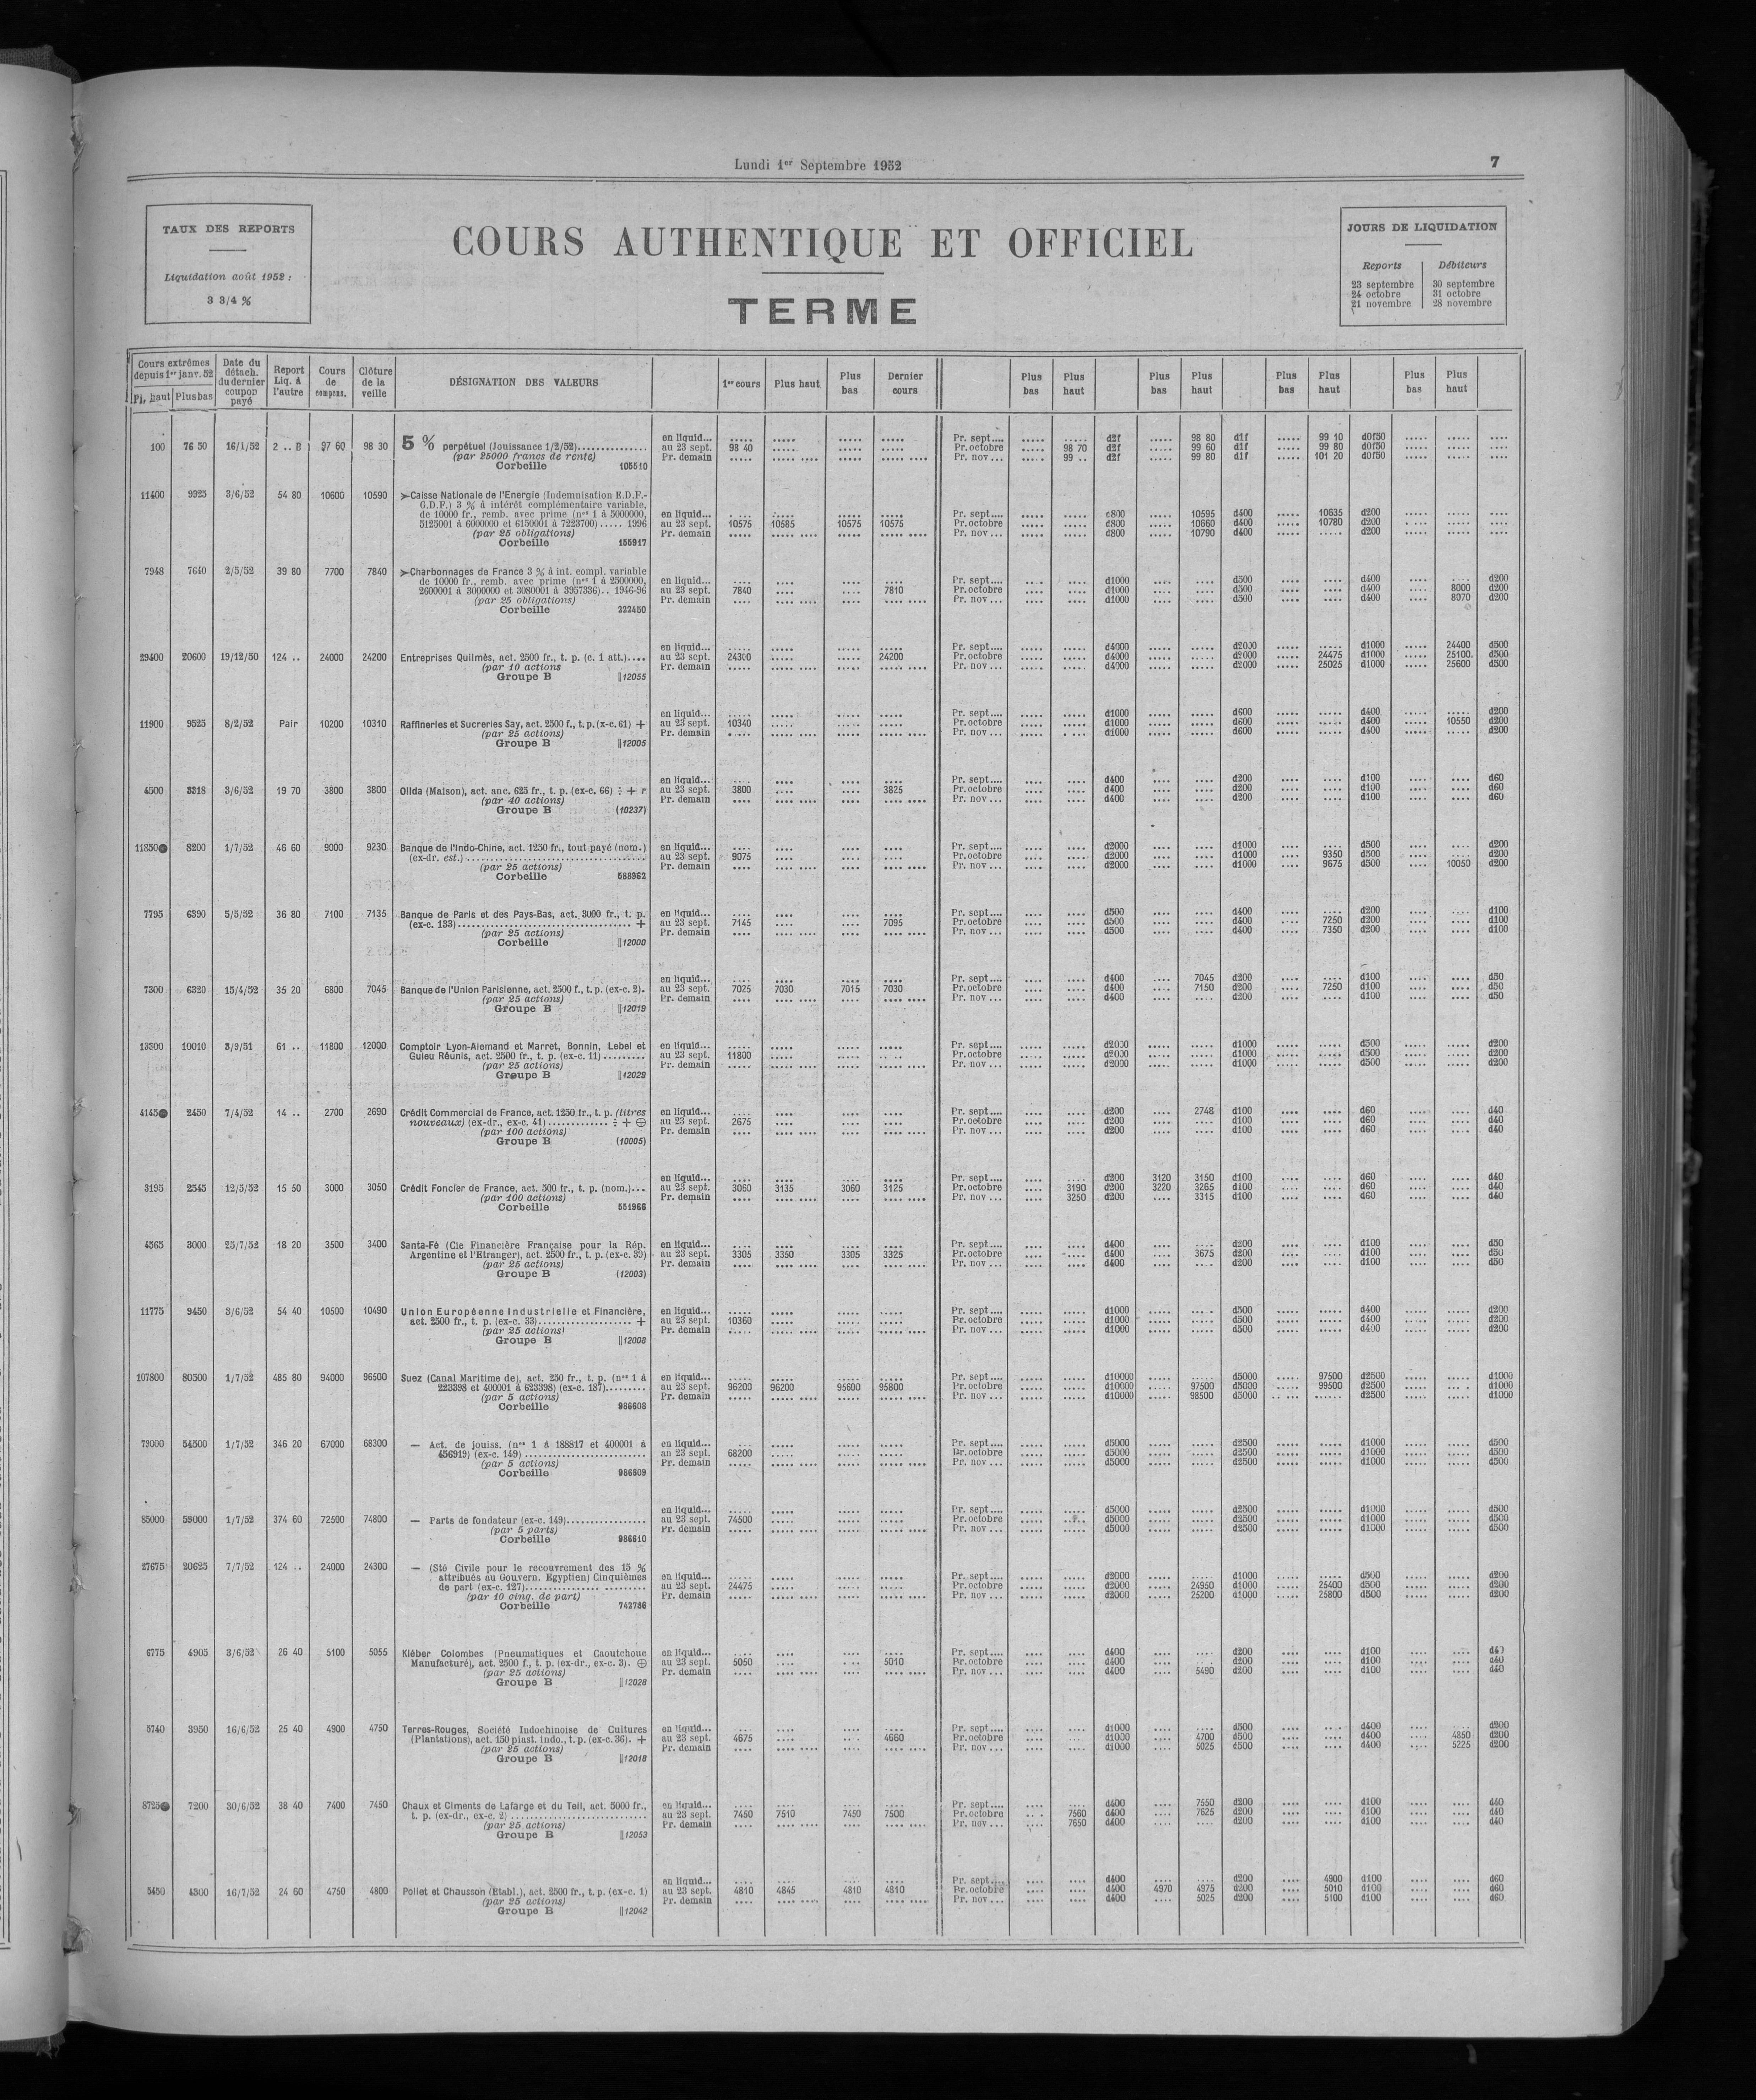 Lundi 1er Septembre 1952
7
TAUX DES REPORTS
Liquidation août 1952 :
3 3/4 %
COURS AUTHENTIQUE ET OFFICIEL
TERME
JOURS DE LIQUIDATION
Reports Débiteurs
23 septembre 30 septembre
24 octobre 31 octobre
21 novembre 28 novembre
Cours extrêmes depuis 1er janv. 52 Pl. haut Plus bas Date du détach. du dernier coupon payé Report Liq. à l'autre Cours de compens. Clôture de la veille DÉSIGNATION DES VALEURS 1er cours Plus haut Plus bas Dernier cours Plus bas Plus haut Plus bas Plus haut Plus bas Plus haut Plus bas Plus haut
en liquid... Pr. sept.... d2f 98 80 d1f 99 10 d0f50
100 76 50 16/1/52 2 .. B 97 60 98 30 5 % perpétuel (Jouissance 1/2/52) au 23 sept. 98 40 Pr. octobre 98 70 d2f 99 60 d1f 99 80 d0f50
(par 25000 francs de rente) Pr. demain Pr. nov... 99 .. d2f 99 80 d1f 101 20 d0f50
Corbeille 105510
11400 9325 3/6/52 54 80 10600 10590 ➤Caisse Nationale de l'Energie (Indemnisation E.D.F.-
G.D.F.) 3 % à intérêt complémentaire variable,
de 10000 fr., remb. avec prime (nos 1 à 5000000, en liquid... Pr. sept.... d800 10595 d400 10635 d200
5125001 à 6000000 et 6150001 à 7223700)..... 1996 au 23 sept. 10575 10585 10575 10575 Pr. octobre d800 10660 d400 10780 d200
(par 25 obligations) Pr. demain Pr. nov... d800 10790 d400 d200
Corbeille 155917
7948 7640 2/5/52 39 80 7700 7840 ➤Charbonnages de France 3 % à int. compl. variable
de 10000 fr., remb. avec prime (nos 1 à 2500000, en liquid... Pr. sept.... d1000 d500 d400 d200
2600001 à 3000000 et 3080001 à 3957336).. 1946-96 au 23 sept. 7840 7810 Pr. octobre d1000 d500 d400 8000 d200
(par 25 obligations) Pr. demain Pr. nov... d1000 d500 d400 8070 d200
Corbeille 222450
en liquid... Pr. sept.... d4000 d2000 d1000 24400 d500
29400 20600 19/12/50 124 .. 24000 24200 Entreprises Quilmès, act. 2500 fr., t. p. (c. 1 att.).... au 23 sept. 24300 24200 Pr. octobre d4000 d2000 24475 d1000 25100 d500
(par 10 actions Pr. demain Pr. nov... d4000 d2000 25025 d1000 25600 d500
Groupe B ||12055
en liquid... Pr. sept.... d1000 d600 d400 d200
11900 9525 8/2/52 Pair 10200 10310 Raffineries et Sucreries Say, act. 2500 f., t. p. (x-c. 61) + au 23 sept. 10340 Pr. octobre d1000 d600 d400 10550 d200
(par 25 actions) Pr. demain Pr. nov... d1000 d600 d400 d200
Groupe B ||12005
en liquid... Pr. sept.... d400 d200 d100 d60
4500 3318 3/6/52 19 70 3800 3800 Olida (Maison), act. anc. 625 fr., t. p. (ex-c. 66) ÷ + r au 23 sept. 3800 3825 Pr. octobre d400 d200 d100 d60
(par 40 actions) Pr. demain Pr. nov... d400 d200 d100 d60
Groupe B (10237)
11850● 8200 1/7/52 46 60 9000 9230 Banque de l'Indo-Chine, act. 1250 fr., tout payé (nom.) en liquid... Pr. sept.... d2000 d1000 d500 d200
(ex-dr. est.) au 23 sept. 9075 Pr. octobre d2000 d1000 9350 d500 d200
(par 25 actions) Pr. demain Pr. nov... d2000 d1000 9675 d500 10050 d200
Corbeille 588962
7795 6390 5/5/52 36 80 7100 7135 Banque de Paris et des Pays-Bas, act. 3000 fr., t. p. en liquid... Pr. sept.... d500 d400 d200 d100
(ex-c. 133) + au 23 sept. 7145 7095 Pr. octobre d500 d400 7250 d200 d100
(par 25 actions) Pr. demain Pr. nov... d500 d400 7350 d200 d100
Corbeille ||12000
en liquid... Pr. sept.... d400 7045 d200 d100 d50
7300 6320 15/4/52 35 20 6800 7045 Banque de l'Union Parisienne, act. 2500 f., t. p. (ex-c. 2). au 23 sept. 7025 7030 7015 7030 Pr. octobre d400 7150 d200 7250 d100 d50
(par 25 actions) Pr. demain Pr. nov... d400 d200 d100 d50
Groupe B ||12019
13300 10010 3/9/51 61 .. 11800 12000 Comptoir Lyon-Alemand et Marret, Bonnin, Lebel et en liquid... Pr. sept.... d2000 d1000 d500 d200
Guieu Réunis, act. 2500 fr., t. p. (ex-c. 11)......... au 23 sept. 11800 Pr. octobre d2000 d1000 d500 d200
(par 25 actions) Pr. demain Pr. nov... d2000 d1000 d500 d200
Groupe B ||12029
4145● 2450 7/4/52 14 .. 2700 2690 Crédit Commercial de France, act. 1250 fr., t. p. (titres en liquid... Pr. sept.... d200 2748 d100 d60 d40
nouveaux) (ex-dr., ex-c. 41)............. ÷ + ⊕ au 23 sept. 2675 Pr. octobre d200 d100 d60 d40
(par 100 actions) Pr. demain Pr. nov... d200 d100 d60 d40
Groupe B (10005)
en liquid... Pr. sept.... d200 3120 3150 d100 d60 d40
3195 2545 12/5/52 15 50 3000 3050 Crédit Foncier de France, act. 500 fr., t. p. (nom.)... au 23 sept. 3060 3135 3060 3125 Pr. octobre 3190 d200 3220 3265 d100 d60 d40
(par 100 actions) Pr. demain Pr. nov... 3250 d200 3315 d100 d60 d40
Corbeille 551966
4565 3000 25/7/52 18 20 3500 3400 Santa-Fé (Cie Financière Française pour la Rép. en liquid... Pr. sept.... d400 d200 d100 d50
Argentine et l'Etranger), act. 2500 fr., t. p. (ex-c. 39) au 23 sept. 3305 3350 3305 3325 Pr. octobre d400 3675 d200 d100 d50
(par 25 actions) Pr. demain Pr. nov... d400 d200 d100 d50
Groupe B (12003)
11775 9450 3/6/52 54 40 10500 10490 Union Européenne Industrielle et Financière, en liquid... Pr. sept.... d1000 d500 d400 d200
act. 2500 fr., t. p. (ex-c. 33)................... + au 23 sept. 10360 Pr. octobre d1000 d500 d400 d200
(par 25 actions) Pr. demain Pr. nov... d1000 d500 d400 d200
Groupe B ||12008
107800 80500 1/7/52 485 80 94000 96500 Suez (Canal Maritime de), act. 250 fr., t. p. (nos 1 à en liquid... Pr. sept.... d10000 d5000 97500 d2500 d1000
223398 et 400001 à 623398) (ex-c. 187)......... au 23 sept. 96200 96200 95600 95800 Pr. octobre d10000 97500 d5000 99500 d2500 d1000
(par 5 actions) Pr. demain Pr. nov... d10000 98500 d5000 d2500 d1000
Corbeille 986608
79000 54500 1/7/52 346 20 67000 68300 — Act. de jouiss. (nos 1 à 188817 et 400001 à en liquid... Pr. sept.... d5000 d2500 d1000 d500
456919) (ex-c. 149) au 23 sept. 68200 Pr. octobre d5000 d2500 d1000 d500
(par 5 actions) Pr. demain Pr. nov... d5000 d2500 d1000 d500
Corbeille 986609
en liquid... Pr. sept.... d5000 d2500 d1000 d500
85000 59000 1/7/52 374 60 72500 74800 — Parts de fondateur (ex-c. 149) au 23 sept. 74500 Pr. octobre d5000 d2500 d1000 d500
(par 5 parts) Pr. demain Pr. nov... d5000 d2500 d1000 d500
Corbeille 986610
27675 20625 7/7/52 124 .. 24000 24300 — (Sté Civile pour le recouvrement des 15 %
attribués au Gouvern. Egyptien) Cinquièmes en liquid... Pr. sept.... d2000 d1000 d500 d200
de part (ex-c. 127) au 23 sept. 24475 Pr. octobre d2000 24950 d1000 25400 d500 d200
(par 10 cinq. de part) Pr. demain Pr. nov... d2000 25200 d1000 25800 d500 d200
Corbeille 742786
6775 4905 3/6/52 26 40 5100 5055 Kléber Colombes (Pneumatiques et Caoutchouc en liquid... Pr. sept.... d400 d200 d100 d40
Manufacturé), act. 2500 f., t. p. (ex-dr., ex-c. 3). ⊕ au 23 sept. 5050 5010 Pr. octobre d400 d200 d100 d40
(par 25 actions) Pr. demain Pr. nov... d400 5490 d200 d100 d40
Groupe B ||12028
5740 3950 16/6/52 25 40 4900 4750 Terres-Rouges, Société Indochinoise de Cultures en liquid... Pr. sept.... d1000 d500 d400 d200
(Plantations), act. 150 piast. indo., t. p. (ex-c. 36). + au 23 sept. 4675 4660 Pr. octobre d1000 4700 d500 d400 4850 d200
(par 25 actions) Pr. demain Pr. nov... d1000 5025 d500 d400 5225 d200
Groupe B ||12018
8725● 7200 30/6/52 38 40 7400 7450 Chaux et Ciments de Lafarge et du Teil, act. 5000 fr., en liquid... Pr. sept.... d400 7550 d200 d100 d40
t. p. (ex-dr., ex-c. 2) au 23 sept. 7450 7510 7450 7500 Pr. octobre 7560 d400 7625 d200 d100 d40
(par 25 actions) Pr. demain Pr. nov... 7650 d400 d200 d100 d40
Groupe B ||12053
en liquid... Pr. sept.... d400 d200 4900 d100 d60
5450 4300 16/7/52 24 60 4750 4800 Poliet et Chausson (Etabl.), act. 2500 fr., t. p. (ex-c. 1) au 23 sept. 4810 4845 4810 4810 Pr. octobre d400 4970 4975 d200 5010 d100 d60
(par 25 actions) Pr. demain Pr. nov... d400 5025 d200 5100 d100 d60
Groupe B ||12042